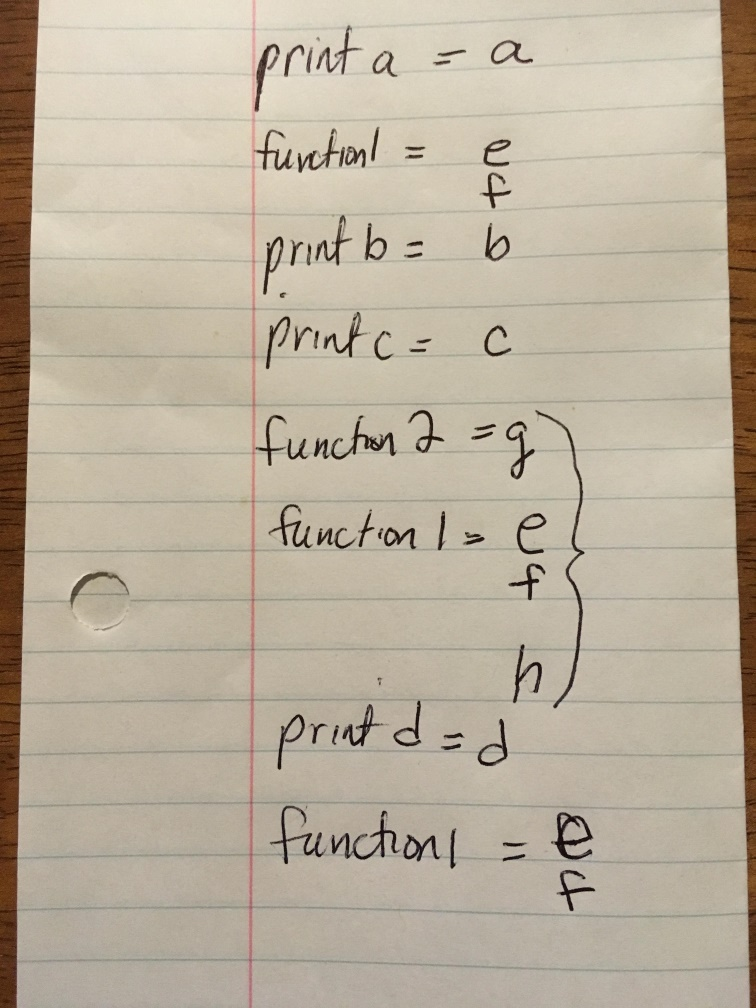 print a = a
function1 = e
f
print b = b
print c = c
function 2 = g
function 1 = e
f
h
print d = d
function1 = e
f